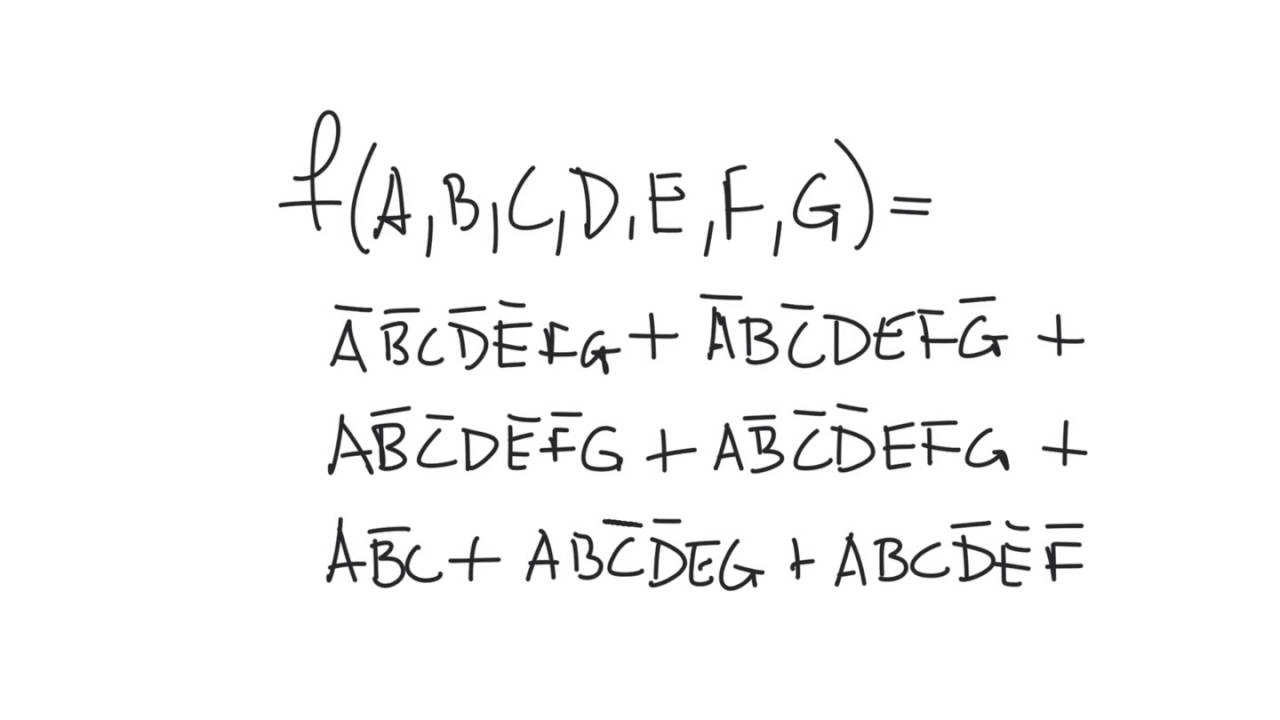 f(A,B,C,D,E,F,G)=
A̅B̅CD̅E̅FG+A̅BC̅DEF̅G̅+
AB̅C̅DE̅F̅G+AB̅C̅D̅EF̅G+
AB̅C+ABC̅D̅EG+ABCD̅E̅F̅